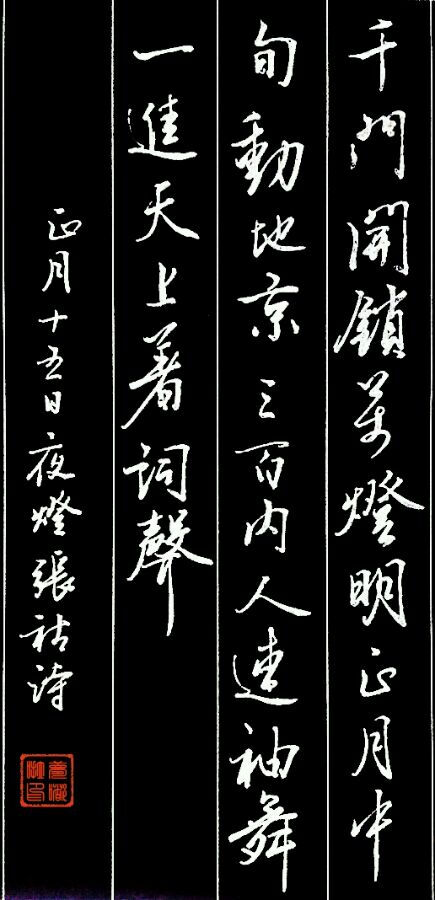 千門開鎖萬燈明正月中
旬動地京三百内人連袖舞
一進天上著詞聲
正月十五日夜燈張祜詩